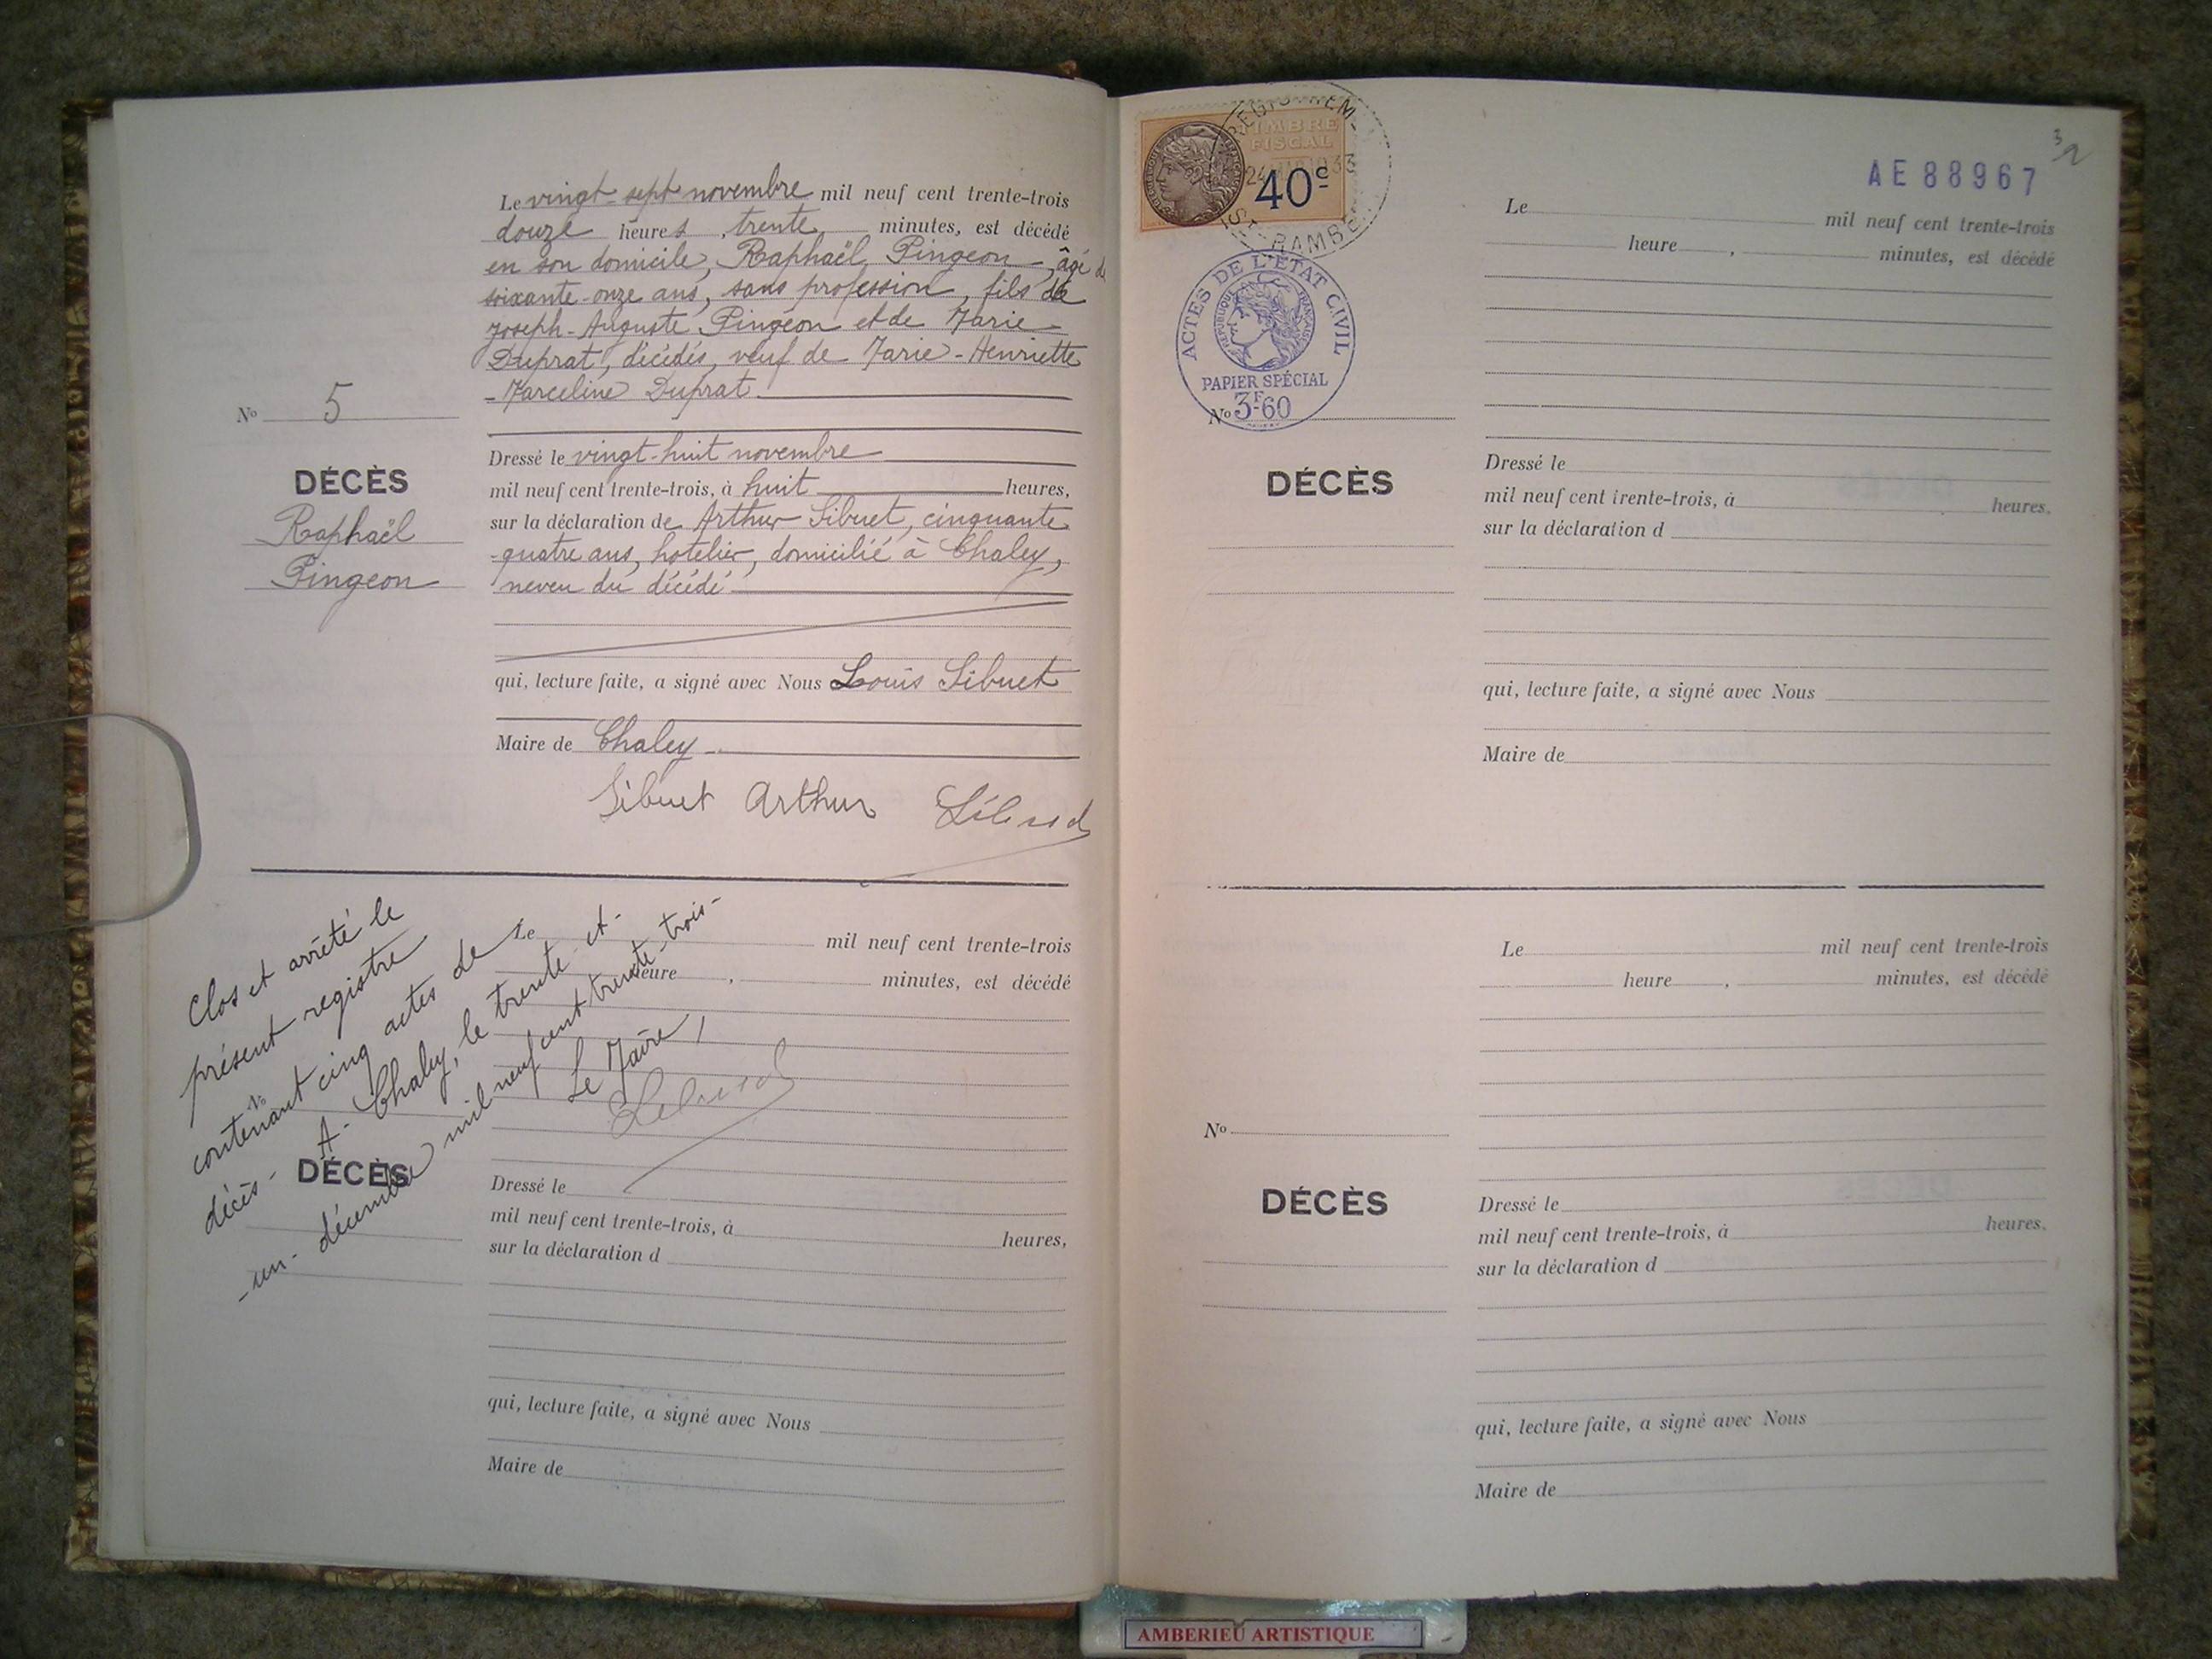 Le vingt-sept novembre mil neuf cent trente-trois
douze heures, trente minutes, est décédé
en son domicile, Raphaël Pingeon - âgé de
soixante-onze ans, sans profession, fils de
Joseph-Auguste Pingeon et de Marie
Duprat, décédés, veuf de Marie-Henriette
-Marceline Duprat.
No 5
DÉCÈS
Raphaël
Pingeon
Dressé le vingt-huit novembre
mil neuf cent trente-trois, à huit heures,
sur la déclaration de Arthur Sibuet, cinquante
-quatre ans, hotelier, domicilié à Chaley,
neveu du décédé
qui, lecture faite, a signé avec Nous Louis Sibuet
Maire de Chaley
Sibuet Arthur
Clos et arrêté le
présent registre
contenant cinq actes de
décès - A - Chaley, le trente - et -
-un - décembre mil neuf cent trente-trois-
Le Maire,
Le mil neuf cent trente-trois
heure , minutes, est décédé
No
DÉCÈS
Dressé le
mil neuf cent trente-trois, à heures,
sur la déclaration d
qui, lecture faite, a signé avec Nous
Maire de
TIMBRE
FISCAL
40c
ACTES DE L'ÉTAT CIVIL
RÉPUBLIQUE FRANÇAISE
PAPIER SPÉCIAL
3F60
AE 88967
Le mil neuf cent trente-trois
heure , minutes, est décédé
No
DÉCÈS
Dressé le
mil neuf cent trente-trois, à heures.
sur la déclaration d
qui, lecture faite, a signé avec Nous
Maire de
Le mil neuf cent trente-trois
heure , minutes, est décédé
No
DÉCÈS
Dressé le
mil neuf cent trente-trois, à heures.
sur la déclaration d
qui, lecture faite, a signé avec Nous
Maire de
AMBERIEU ARTISTIQUE